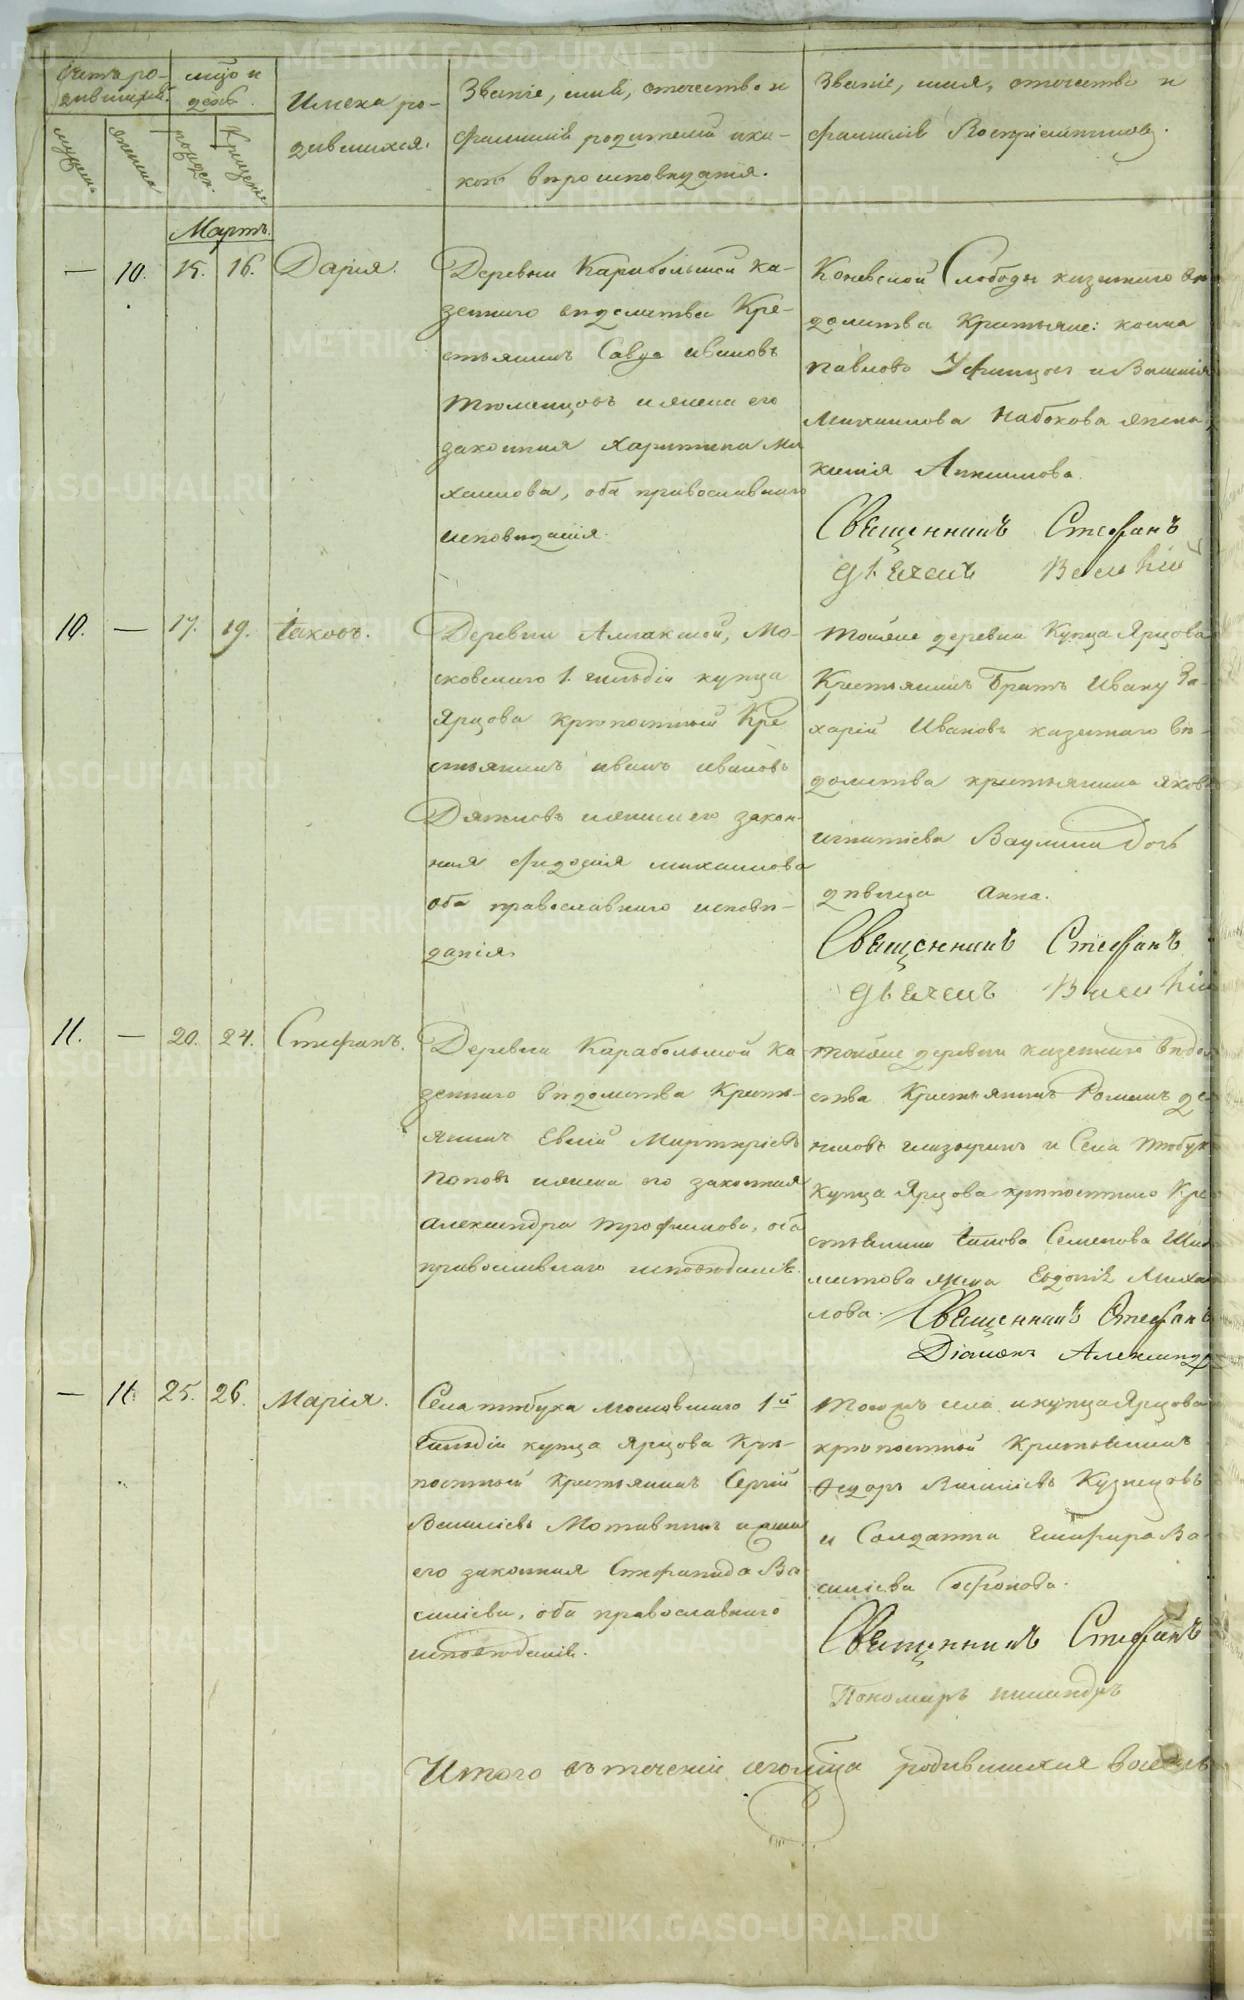 Счетъ ро-
дившихся.
мѣсяцъ и
день.
Имена ро-
дившихся.
Званіе, имя, отечество и
фамилія родителей и ка-
кого вѣроисповѣданія.
Званіе, имя, отечество и
фамилія Воспріемниковъ.
мужеска
женска
рожден.
Крещенія
Мартъ.
— 10. 15. 16. Дарія.
Деревни Карабольской ка-
зеннаго вѣдомства Кре-
стьянинъ Савва Ивановъ
Тюменцовъ и жена его
законная Харитина Ми
хаилова, оба православнаго
исповѣданія.
Коневской Слободы казеннаго вѣ
домства Крестьяне: Косма
Павловъ Уфинцовъ и Василія
Михаилова Набокова жена,
Анкиндинова
Священникъ Стефанъ
10. — 17. 19. Іаковъ.
Деревни Алмакской, Мо-
сковскаго 1. гильдіи купца
Ярцова крѣпостный Кре
стьянинъ Иванъ Ивановъ
Дятловъ и жена его закон-
ная Федосія Михаилова
оба православнаго исповѣ-
данія.
тойже деревни Купца Ярцова
Крестьянинъ Братъ Ивану За-
харій Ивановъ казеннаго вѣ-
домства крестьянина Якова
Игнатіева Ваулина дочь
дѣвица Анна.
Священникъ Стефанъ
11. — 20. 24. Стефанъ.
Деревни Карабольской ка
зеннаго вѣдомства Кресть-
янинъ Евсій Мартиріевъ
Поповъ и жена его законная
Александра Трофимова, оба
православнаго исповѣданія.
тойже деревни казеннаго вѣдом
ства Крестьянинъ Романъ Да-
ниловъ Глазыринъ и Села Тюбук
Купца Ярцова крѣпостнаго Кре
стьянина Семенова
жена Евдокія Михаи
лова. Священникъ Стефанъ
Діаконъ Александр
— 11. 25. 26. Марія.
Села Тюбука Московскаго 1й
Гильдіи купца Ярцова Крѣ-
постный Крестьянинъ Сергій
Василіевъ Мотивинъ и жена
его законная Стефанида Ва
силіева, оба православнаго
исповѣданія.
тогожъ села и купца Ярцова
крѣпостный Крестьянинъ
Ѳедоръ Василіевъ Кузнецовъ
и Солдатка Глафира Ва-
силіева Сафонова.
Священникъ Стефанъ
Пономарь
Итого въ теченіи сего мѣсяца родившихся
METRIKI.GASO-URAL.RU